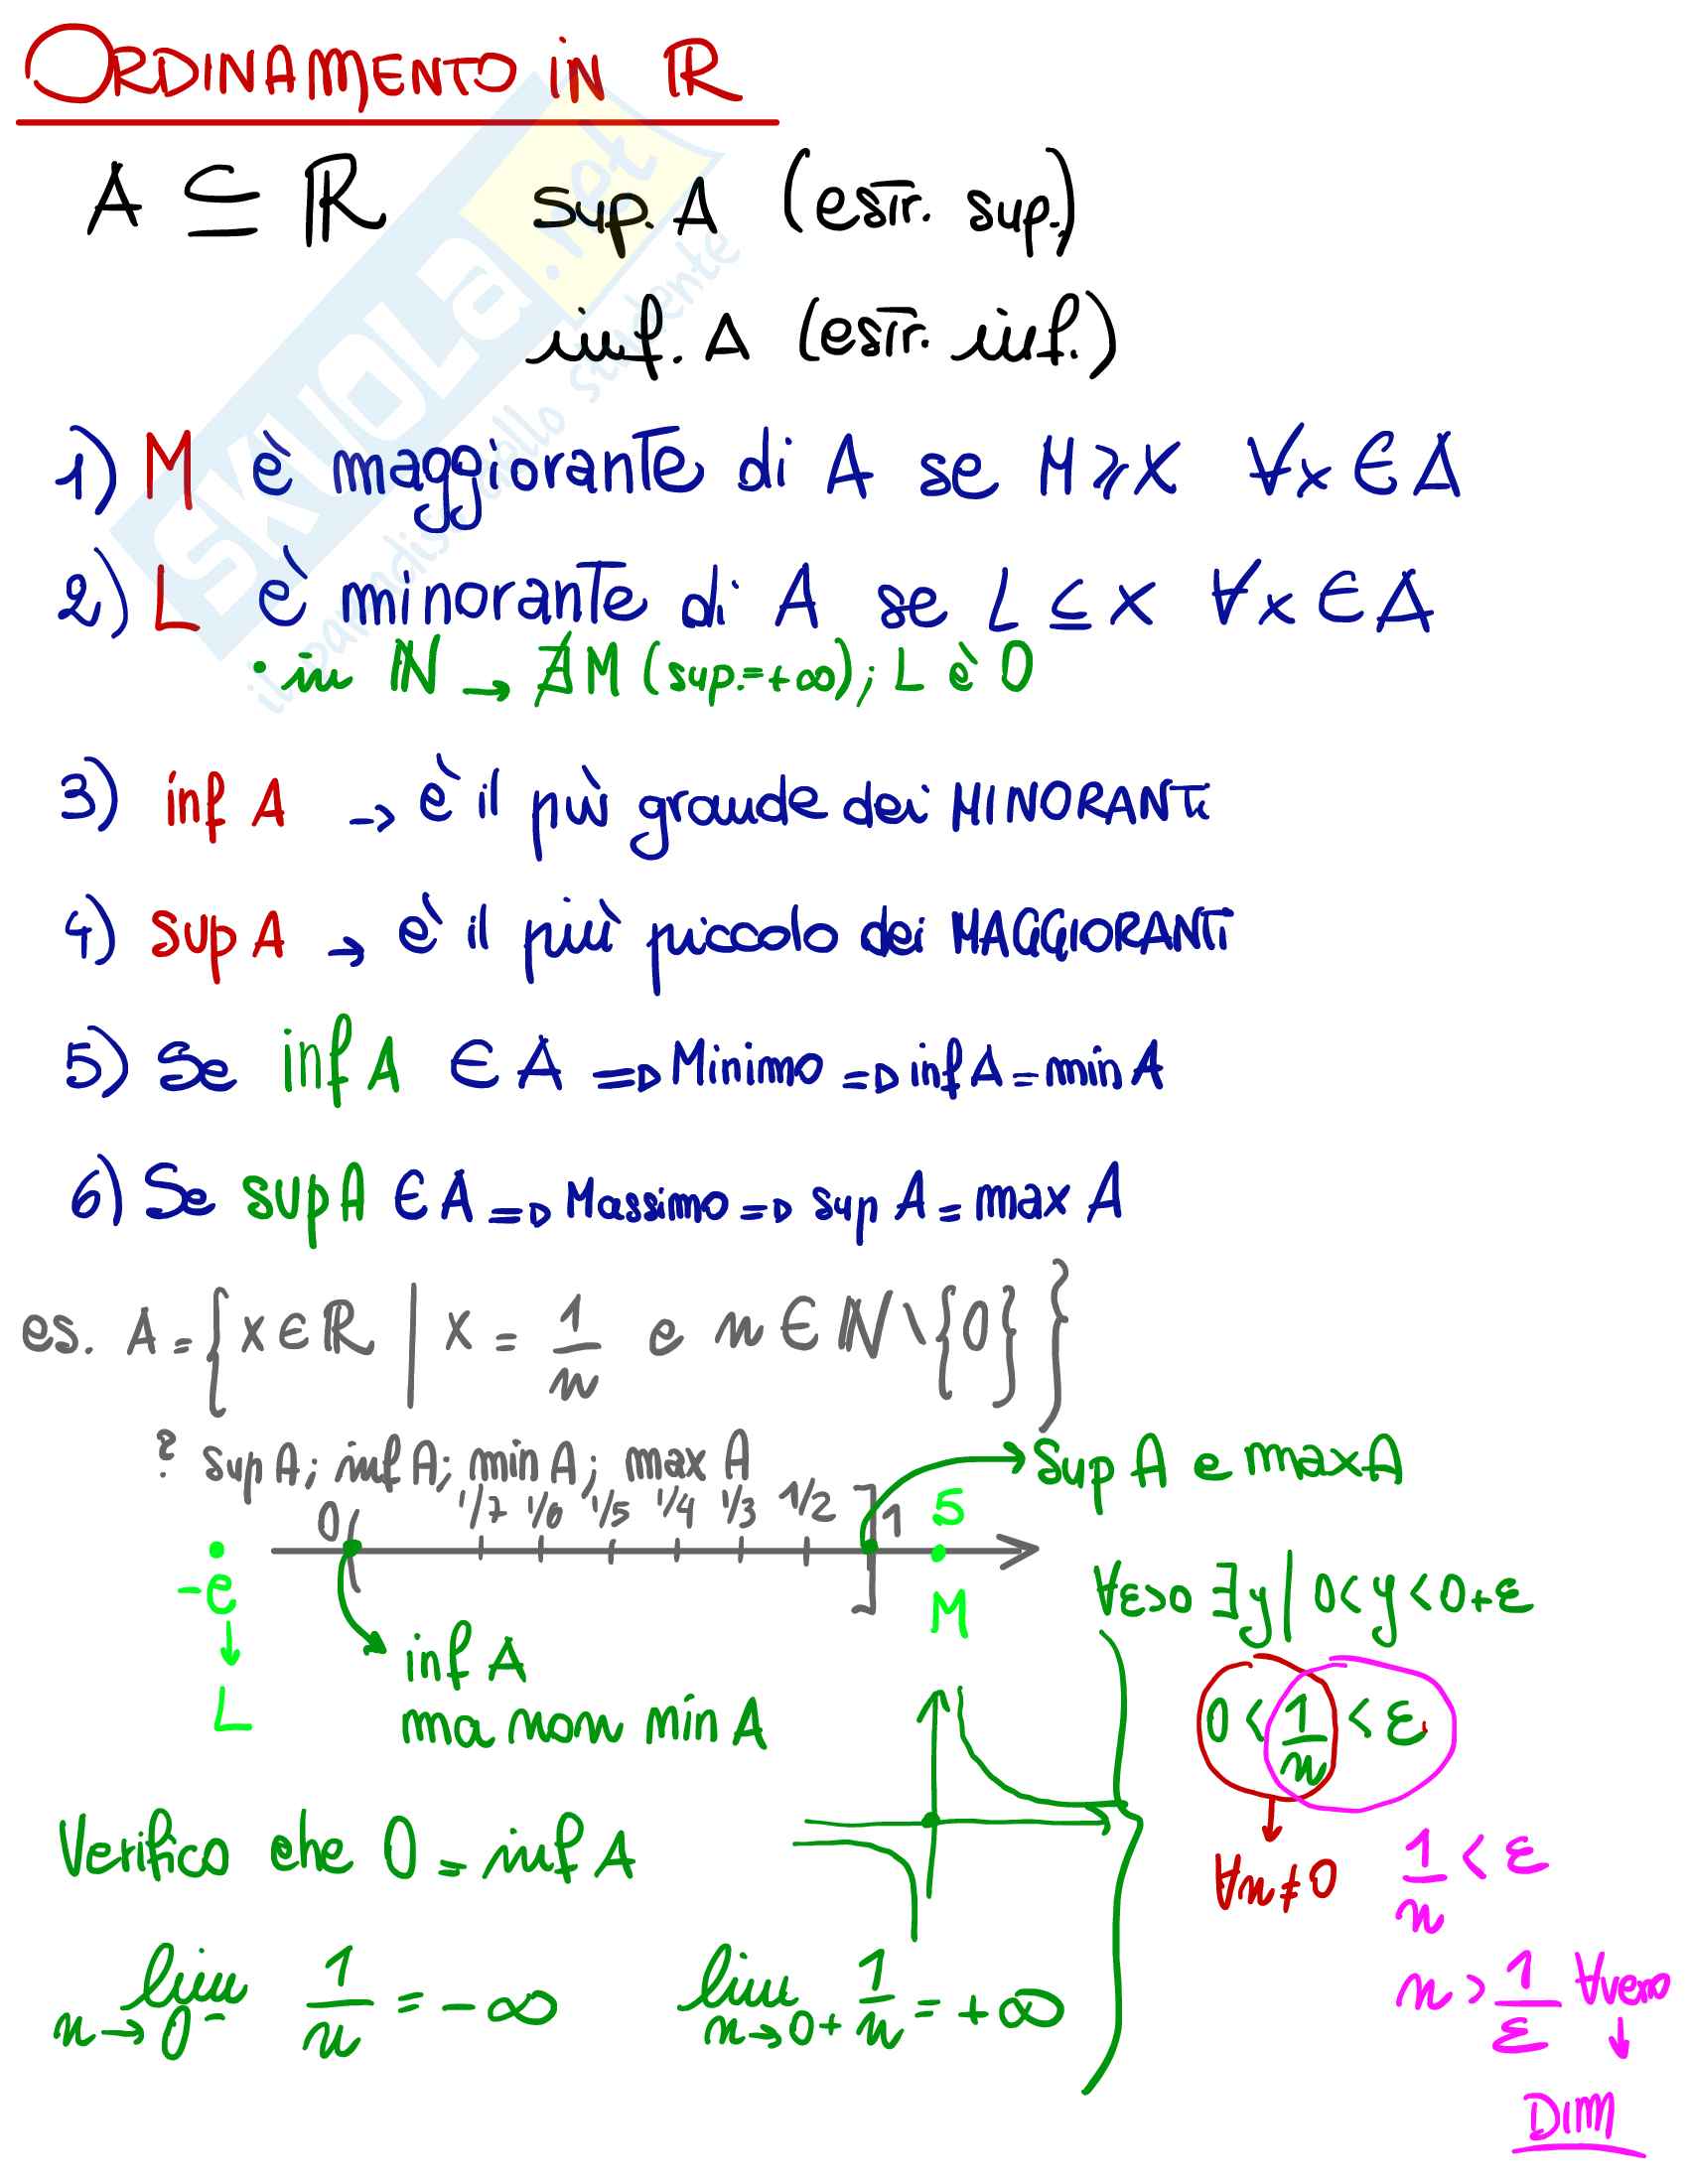 ORDINAMENTO in ℝ
A ⊆ ℝ sup. A (estr. sup.)
inf. A (estr. inf.)
1) M è maggiorante di A se M ⩾ x ∀x ∈ A
2) L è minorante di A se L ≤ x ∀x ∈ A
• in ℕ → ∄ M (sup.=+∞); L è 0
3) inf A → è il più grande dei MINORANTi
4) sup A → è il più piccolo dei MAGGIORANTi
5) Se inf A ∈ A ⇒ Minimo ⇒ inf A = min A
6) Se sup A ∈ A ⇒ Massimo ⇒ sup A = max A
es. A = { x ∈ ℝ | x = 1/n e n ∈ ℕ \ {0} }
? sup A; inf A; min A; max A
sup A e max A
0 1/7 1/6 1/5 1/4 1/3 1/2 1 5
-e M
L
inf A
ma non min A
∀ε>0 ∃y | 0<y<0+ε
0 < 1/n < ε
∀n≠0
1/n < ε
n > 1/ε ∀vero
DIM
Verifico che 0 = inf A
lim n→0⁻ 1/n = -∞ lim n→0+ 1/n = +∞
SKUOLa.net